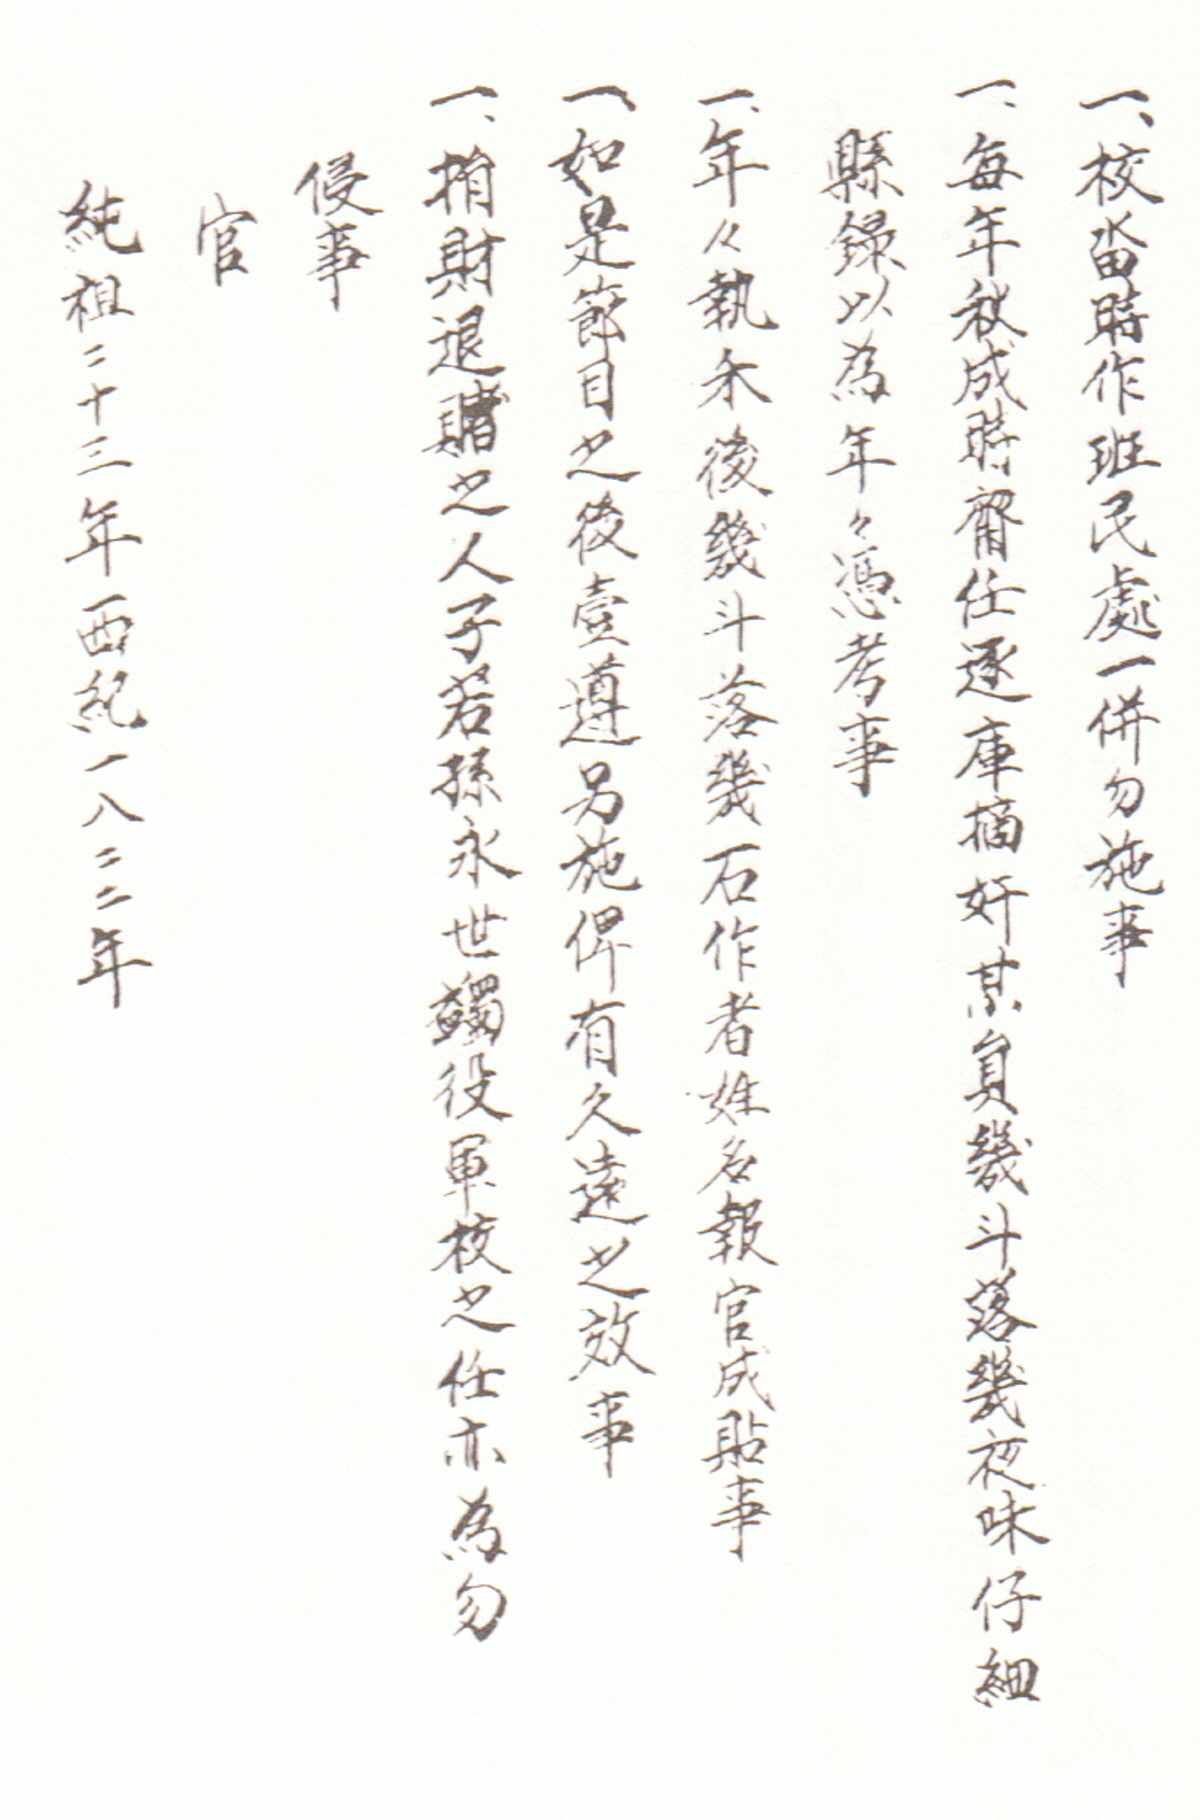 一、校畓時作班民處一倂勿施事
一、每年秋成時齋任逐庫摘奸某員幾斗落幾夜味仔細
縣錄以為年々憑考事
一、年々執禾後幾斗落幾石作者姓名報官成貼事
一、如是節目之後壹遵另施俾有久遠之效事
一、捐財退賭之人子若孫永世蠲役軍校之任亦為勿
侵事
官
純祖二十三年西紀一八二二年